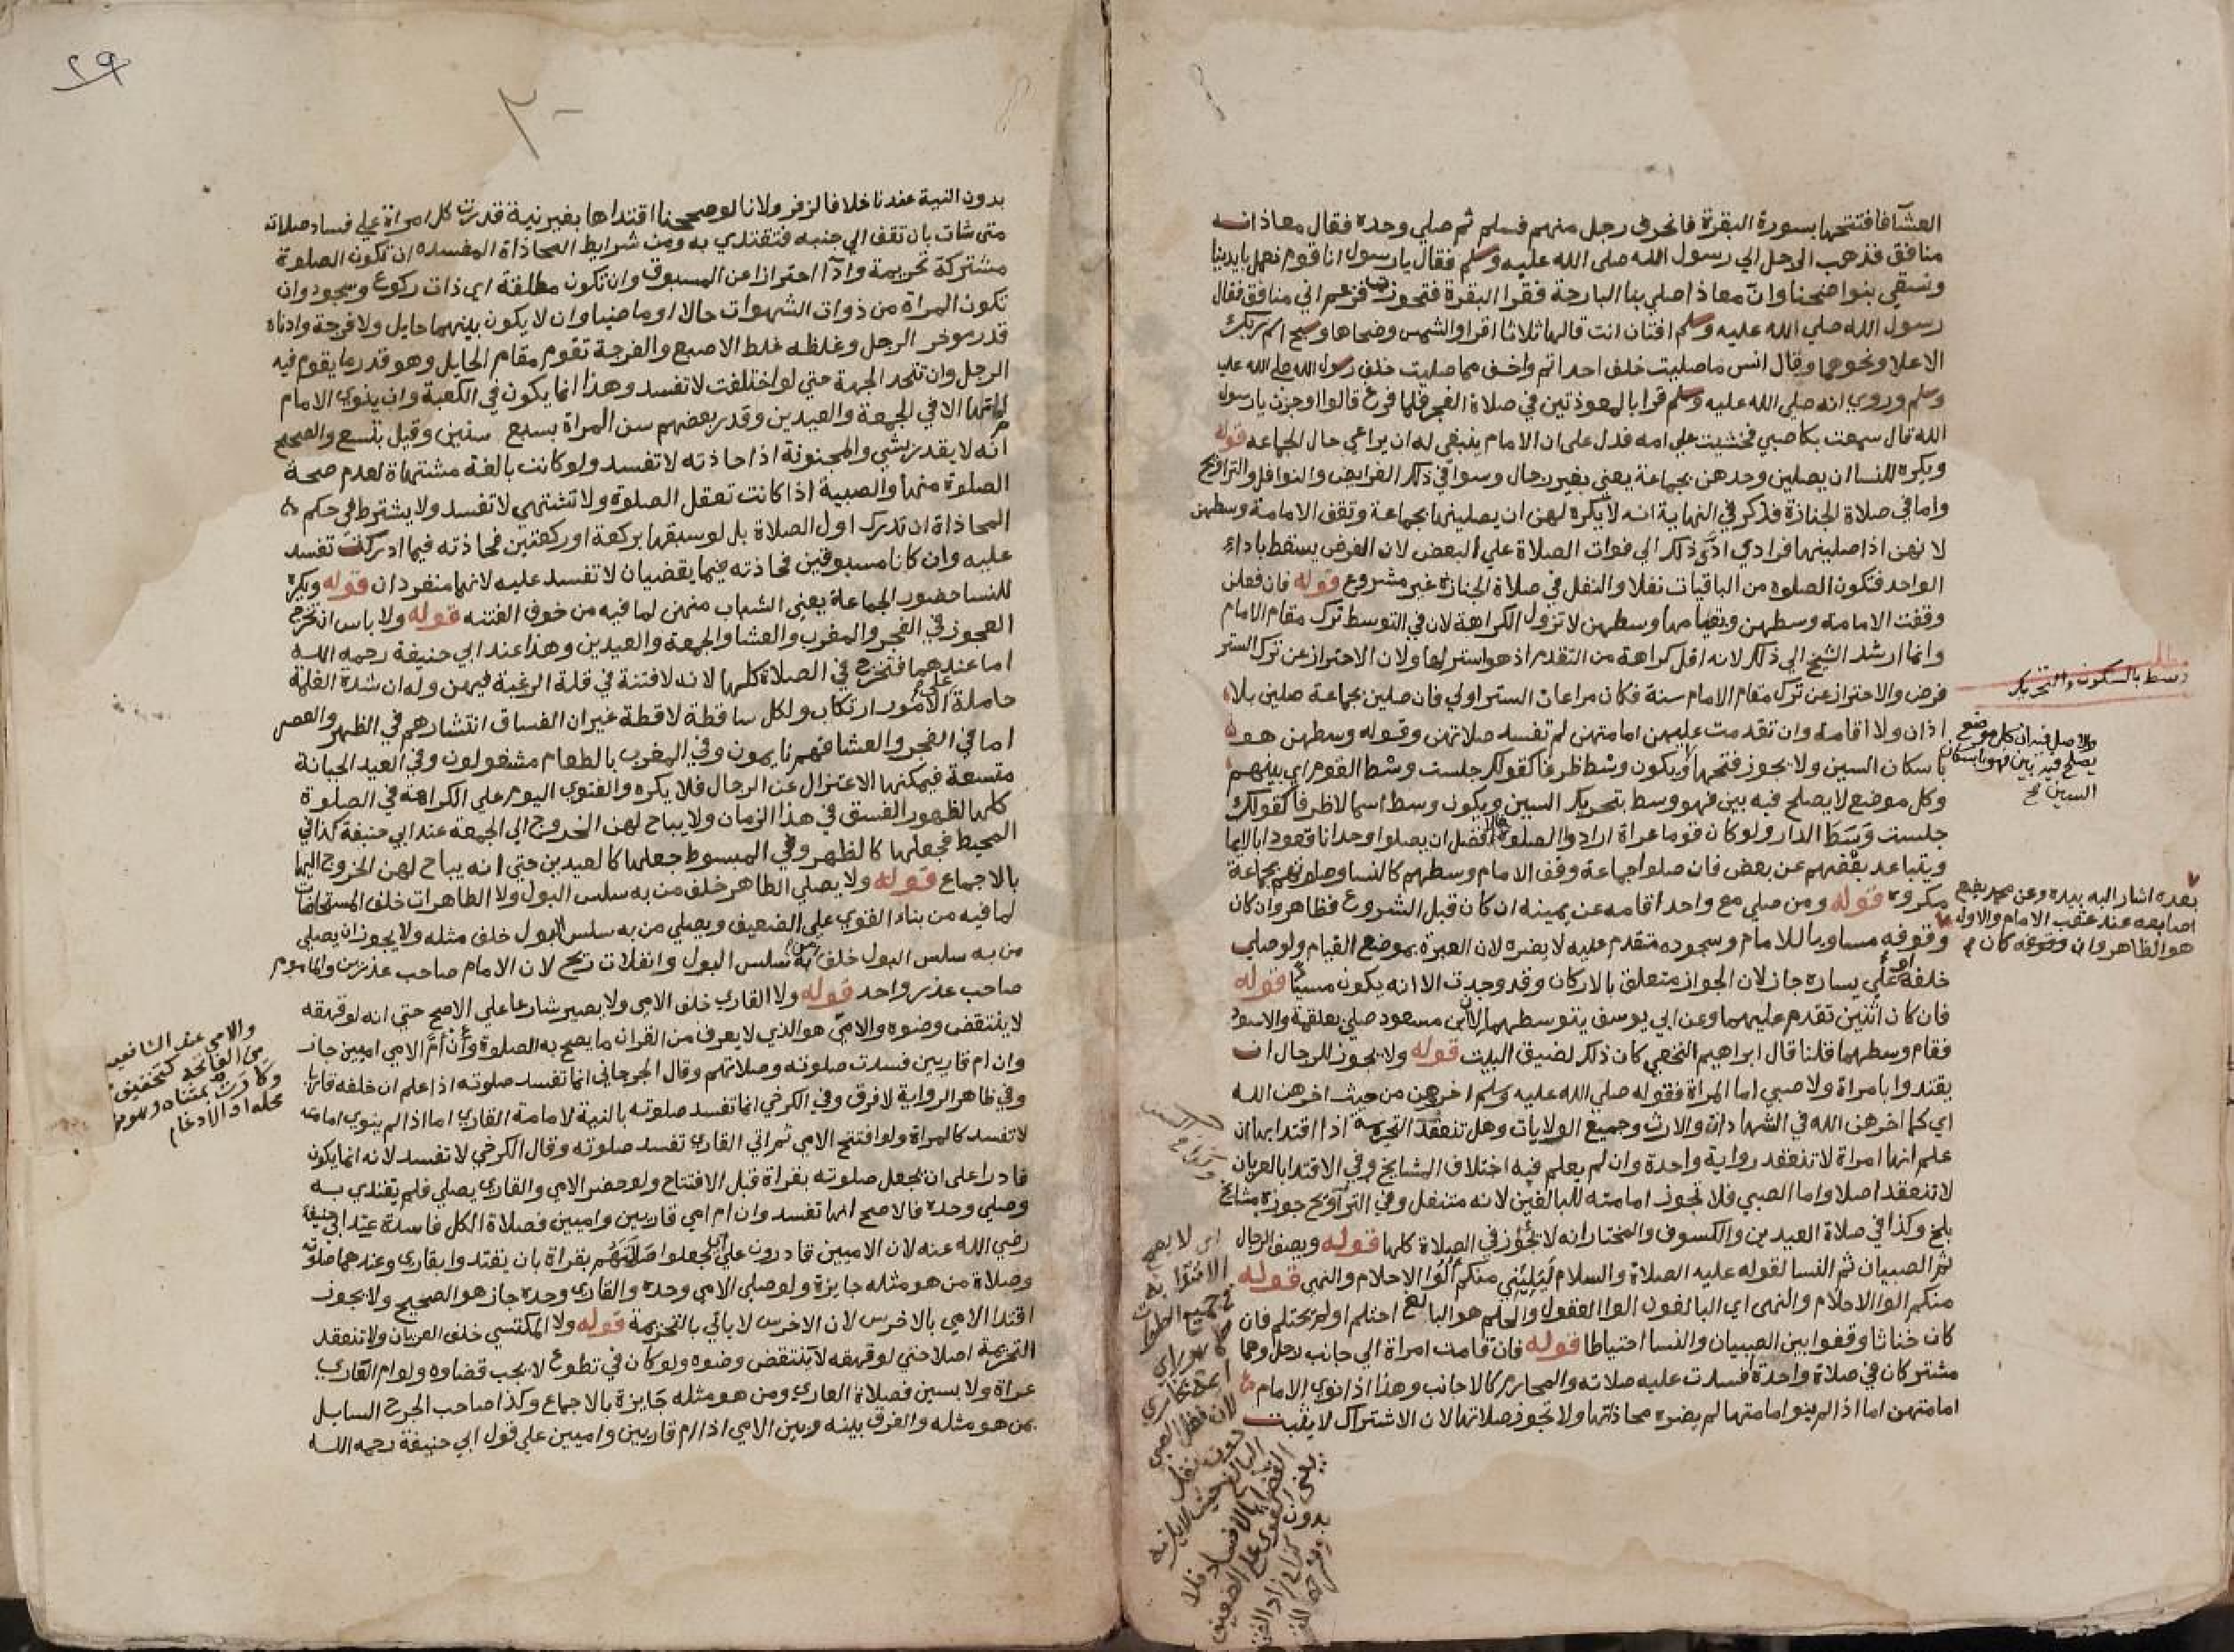 العشآ فافتتحها بسورة البقرة فانحرف رجل منهم فسلم ثم صلي وحده فقال معاذ انه
منافق فذهب الرجل الي رسول الله صلى الله عليه وسلم فقال يا رسول انا قوم نعمل بايدينا
ونسقي بنواضحنا وانّ معاذ اصلي بنا البارحة فقرا البقرة فتجوزت فزعم اني منافق فقال
رسول الله صلي الله عليه وسلم افتان انت قالها ثلاثا اقرا والشمس وضحاها وسبح اسم ربك
الاعلا ونحوهما وقال انس ما صليت خلف احد اتم واخف مما صليت خلف رسول الله صلى الله عليه
وسلم وروي انه صلي الله عليه وسلم قرا بالمعوذتين في صلاة الفجر فلما فرغ قالوا اوجزت يا رسول
الله قال سمعت بكا صبي فخشيت علي امه فدل على ان الامام ينبغي له ان يراعي حال الجماعه قوله
ويكره للنسا ان يصلين وحدهن بجماعة يعني بغير رجال وسوا في ذلك الفرايض والنوافل والتراويح
واما في صلاة الجنازة فذكر في النهاية انه لا يكره لهن ان يصلينها بجماعة وتقف الامامة وسطهن
لانهن اذا صلينها فرادي ادّي ذلك الي فوات الصلاة علي البعض لان الفرض يسقط باداء
الواحد فتكون الصلوة من الباقيات نفلا والنفل في صلاة الجنازة غير مشروع قوله فان فعلن
وقفت الامامة وسطهن وبقيامها وسطهن لا تزول الكراهة لان في التوسط ترك مقام الامام
وانما ارشد الشيخ الي ذلك لانه اقل كراهة من التقدم اذ هو استر لها ولان الاحتراز عن ترك الستر
فرض والاحتراز عن ترك مقام الامام سنة فكان مراعات الستر اولي فان صلين بجماعة صلين بلا
اذان ولا اقامة وان تقدمت عليهن امامتهن لم تفسد صلاتهن وقوله وسطهن هو
باسكان السين ولا يجوز فتحها ويكون وسْط ظرفا كقولك جلست وسْط القوم اي بينهم
وكل موضع لا يصلح فيه بين فهو وسط بتحريك السين ويكون وسط اسما لا ظرفا كقولك
جلست وَسَطَ الدار ولو كان قوما عراة ارادوا الصلوة فالافضل ان يصلوا وحدانا قعودا بالايما
ويتباعد بعضهم عن بعض فان صلوا جماعة وقف الامام وسطهم كالنسا وصلوتهم بجماعة
مكروه قوله ومن صلي مع واحد اقامه عن يمينه ان كان قبل الشروع فظاهر وان كان
وقوفه مساويا للامام وسجوده متقدم عليه لا يضره لان العبرة بموضع القيام ولو صلي
خلفه او علي يساره جاز لان الجواز متعلق بالاركان وقد وجدت الا انه يكون مسيئا قوله
فان كان اثنين تقدم عليهما وعن ابي يوسف يتوسطهما لان ابن مسعود صلي بعلقمة والاسود
فقام وسطهما قلنا قال ابراهيم النخعي كان ذلك لضيق البيت قوله ولا يجوز للرجال ان
يقتدوا بامراة ولا صبي اما المراة فقوله صلي الله عليه وسلم اخروهن من حيث اخرهن الله
اي كما اخرهن الله في الشهادات والارث وجميع الولايات وهل تنعقد التحريمه اذا اقتدا بها ان
علم انها امراة لا تنعقد رواية واحدة وان لم يعلم فيه اختلاف المشايخ وفي الاقتدا بالعريان
لا تنعقد اصلا واما الصبي فلا تجوز امامته للبالغين لانه متنفل وفي التراويح جوزه مشايخ
بلخ وكذا في صلاة العيدين والكسوف والمختار انه لا يجوز في الصلاة كلها قوله ويصف الرجال
ثم الصبيان ثم النسا لقوله عليه الصلاة والسلام لَيَلِيَنِّي منكم اُلُوا الاحلام والنهي قوله
منكم الوا الاحلام والنهى اي البالغون الوا العقول والحلم هو البالغ احتلم او لم يحتلم فان
كان خناثا وقفوا بين الصبيان والنسا احتياطا قوله فان قامت امراة الي جانب رجل وهما
مشتركان في صلاة واحدة فسدت عليه صلاته والمحارم كالاجانب وهذا اذا نوي الامام
امامتهن اما اذا لم ينو امامتها لم يضره محاذاتها ولا تجوز صلاتها لان الاشتراك لا يثبت
مطلب
وسط بالسكون والتحريك
والاصل فيه ان كل موضع
يصلح فيه بين فهو باسكان
السين صح
بعده اشار اليه بيده وعن محمد يضع
اصابعه عند عقب الامام والاول
هو الظاهر وان وقوفه كان
اي لا يصح
الاقتدا به
لان نفل الصبي
دون نفل
البالغ حيث لا يلزمه
القضا بالافساد فلا
يبني القوي علي الضعيف
٢٩
بدون النية عندنا خلافا لزفر ولانا لو صححنا اقتداها بغير نية قدرت كل امراة علي فساد صلاته
متي شات بان تقف الي جنبه فتقتدي به ومن شرايط المحاذاة المفسده ان تكون الصلوة
مشتركة تحريمة وادآ احترازا عن المسبوق وان تكون مطلقة اي ذات ركوع وسجود وان
تكون المراة من ذوات الشهوات حالا او ماضيا وان لا يكون بينهما حايل ولا فرجة وادناه
قدر موخر الرحل وغلظه غلظ الاصبع والفرجة تقوم مقام الحايل وهو قدر ما يقوم فيه
الرجل وان تتحد الجهة حتي لو اختلفت لا تفسد وهذا انما يكون في الكعبة وان ينوي الامام
امامتها الا في الجمعة والعيدين وقدر بعضهم سن المراة بسبع سنين وقيل بتسع والصحيح
انه لا يقدر بشي والمجنونة اذا حاذته لا تفسد ولو كانت بالغة مشتهاة لعدم صحة
الصلوة منها والصبية اذا كانت تعقل الصلوة ولا تشتهى لا تفسد ولا يشترط في حكم
المحاذاة ان تدرك اول الصلاة بل لو سبقها بركعة او ركعتين فحاذته فيما ادركت تفسد
عليه وان كانا مسبوقين فحاذته فيما يقضيان لا تفسد عليه لانهما منفردان قوله ويكره
للنسا حضور الجماعة يعني الشباب منهن لما فيه من خوف الفتنه قوله ولا باس ان تخرج
العجوز في الفجر والمغرب والعشا والجمعة والعيدين وهذا عند ابي حنيفة رحمه الله
اما عندهما فتخرج في الصلاة كلها لانه لا فتنة في قلة الرغبة فيهن وله ان شدة الغلمة
حاملة على الامور ارتكاب ولكل ساقطة لاقطة غير ان الفساق انتشارهم في الظهر والعصر
اما في الفجر والعشا فهم نايمون وفي المغرب بالطعام مشغولون وفي العيد الجبانة
متسعة فيمكنها الاعتزال عن الرجال فلا يكره والفتوي اليوم علي الكراهة في الصلوة
كلها لظهور الفسق في هذا الزمان ولا يباح لهن الخروج الي الجمعة عند ابي حنيفة كذا في
المحيط فجعلها كالظهر وفي المبسوط جعلها كالعيدين حتي انه يباح لهن الخروج اليها
بالاجماع قوله ولا يصلي الطاهر خلف من به سلس البول ولا الطاهرات خلف المستحاضات
لما فيه من بناء القوي علي الضعيف ويصلي من به سلس البول خلف مثله ولا يجوز ان يصلي
من به سلس البول خلف من به سلس البول وانفلات ريح لان الامام صاحب عذرين والماموم
صاحب عذر واحد قوله ولا القاري خلف الامي ولا يصير شارعا علي الاصح حتي انه لو قهقه
لا ينتقض وضوه والاميّ هو الذي لا يعرف من القران ما يصح به الصلوة وَأنْ أمَّ الامي اميين جاز
وان ام قاريين فسدت صلوته وصلاتهم وقال الجرجاني انما تفسد صلوته اذا علم ان خلفه قاريا
وفي ظاهر الرواية لا فرق وفي الكرخي انما تفسد صلوته بالنية لامامة القاري اما اذا لم ينوي امامته
لا تفسد كالمراة ولو افتتح الامي ثم اتي القاري تفسد صلوته وقال الكرخي لا تفسد لانه انما يكون
قادرا على ان يجعل صلوته بقراة قبل الافتتاح ولو حضر الامي والقاري يصلي فلم يقتدي به
وصلي وحده فالاصح انها تفسد وان ام امي قاريين واميين فصلاة الكل فاسدة عند ابي حنيفة
رضي الله عنه لان الاميين قادرون علي ان يجعلوا صَلَاتَهُم بقراة بان يقتدوا بقاري وعندهما صلوته
وصلاة من هو مثله جايزة ولو صلي الامي وحده والقاري وحده جاز هو الصحيح ولا يجوز
اقتدا الامي بالاخرس لان الاخرس لا ياتي بالتحريمة قوله ولا المكتسي خلف العريان ولا تنعقد
التحريمة اصلا حتي لو قهقه لا ينتقض وضوه ولو كان في تطوع لا يجب قضاوه ولو ام العاري
عراة ولابسين فصلاة العاري ومن هو مثله جَايزة بالاجماع وكذا صاحب الجرح السايل
بمن هو مثله والفرق بينه وبين الامي اذا ام قاريين واميين علي قول ابي حنيفة رحمه الله
والامي عند الشافعيه